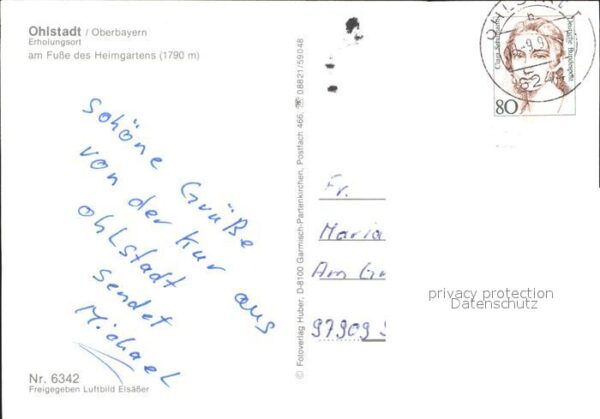 Ohlstadt / Oberbayern
Erholungsort
am Fuße des Heimgartens (1790 m)
schöne Grüße
von der Kur aus
Ohlstadt
sendet
Michael
Nr. 6342
Freigegeben Luftbild Elsäßer
© Fotoverlag Huber, D-8100 Garmisch-Partenkirchen, Postfach 466, ☏ 08821/59048
Fr.
Maria
Am
97909
privacy protection
Datenschutz
80